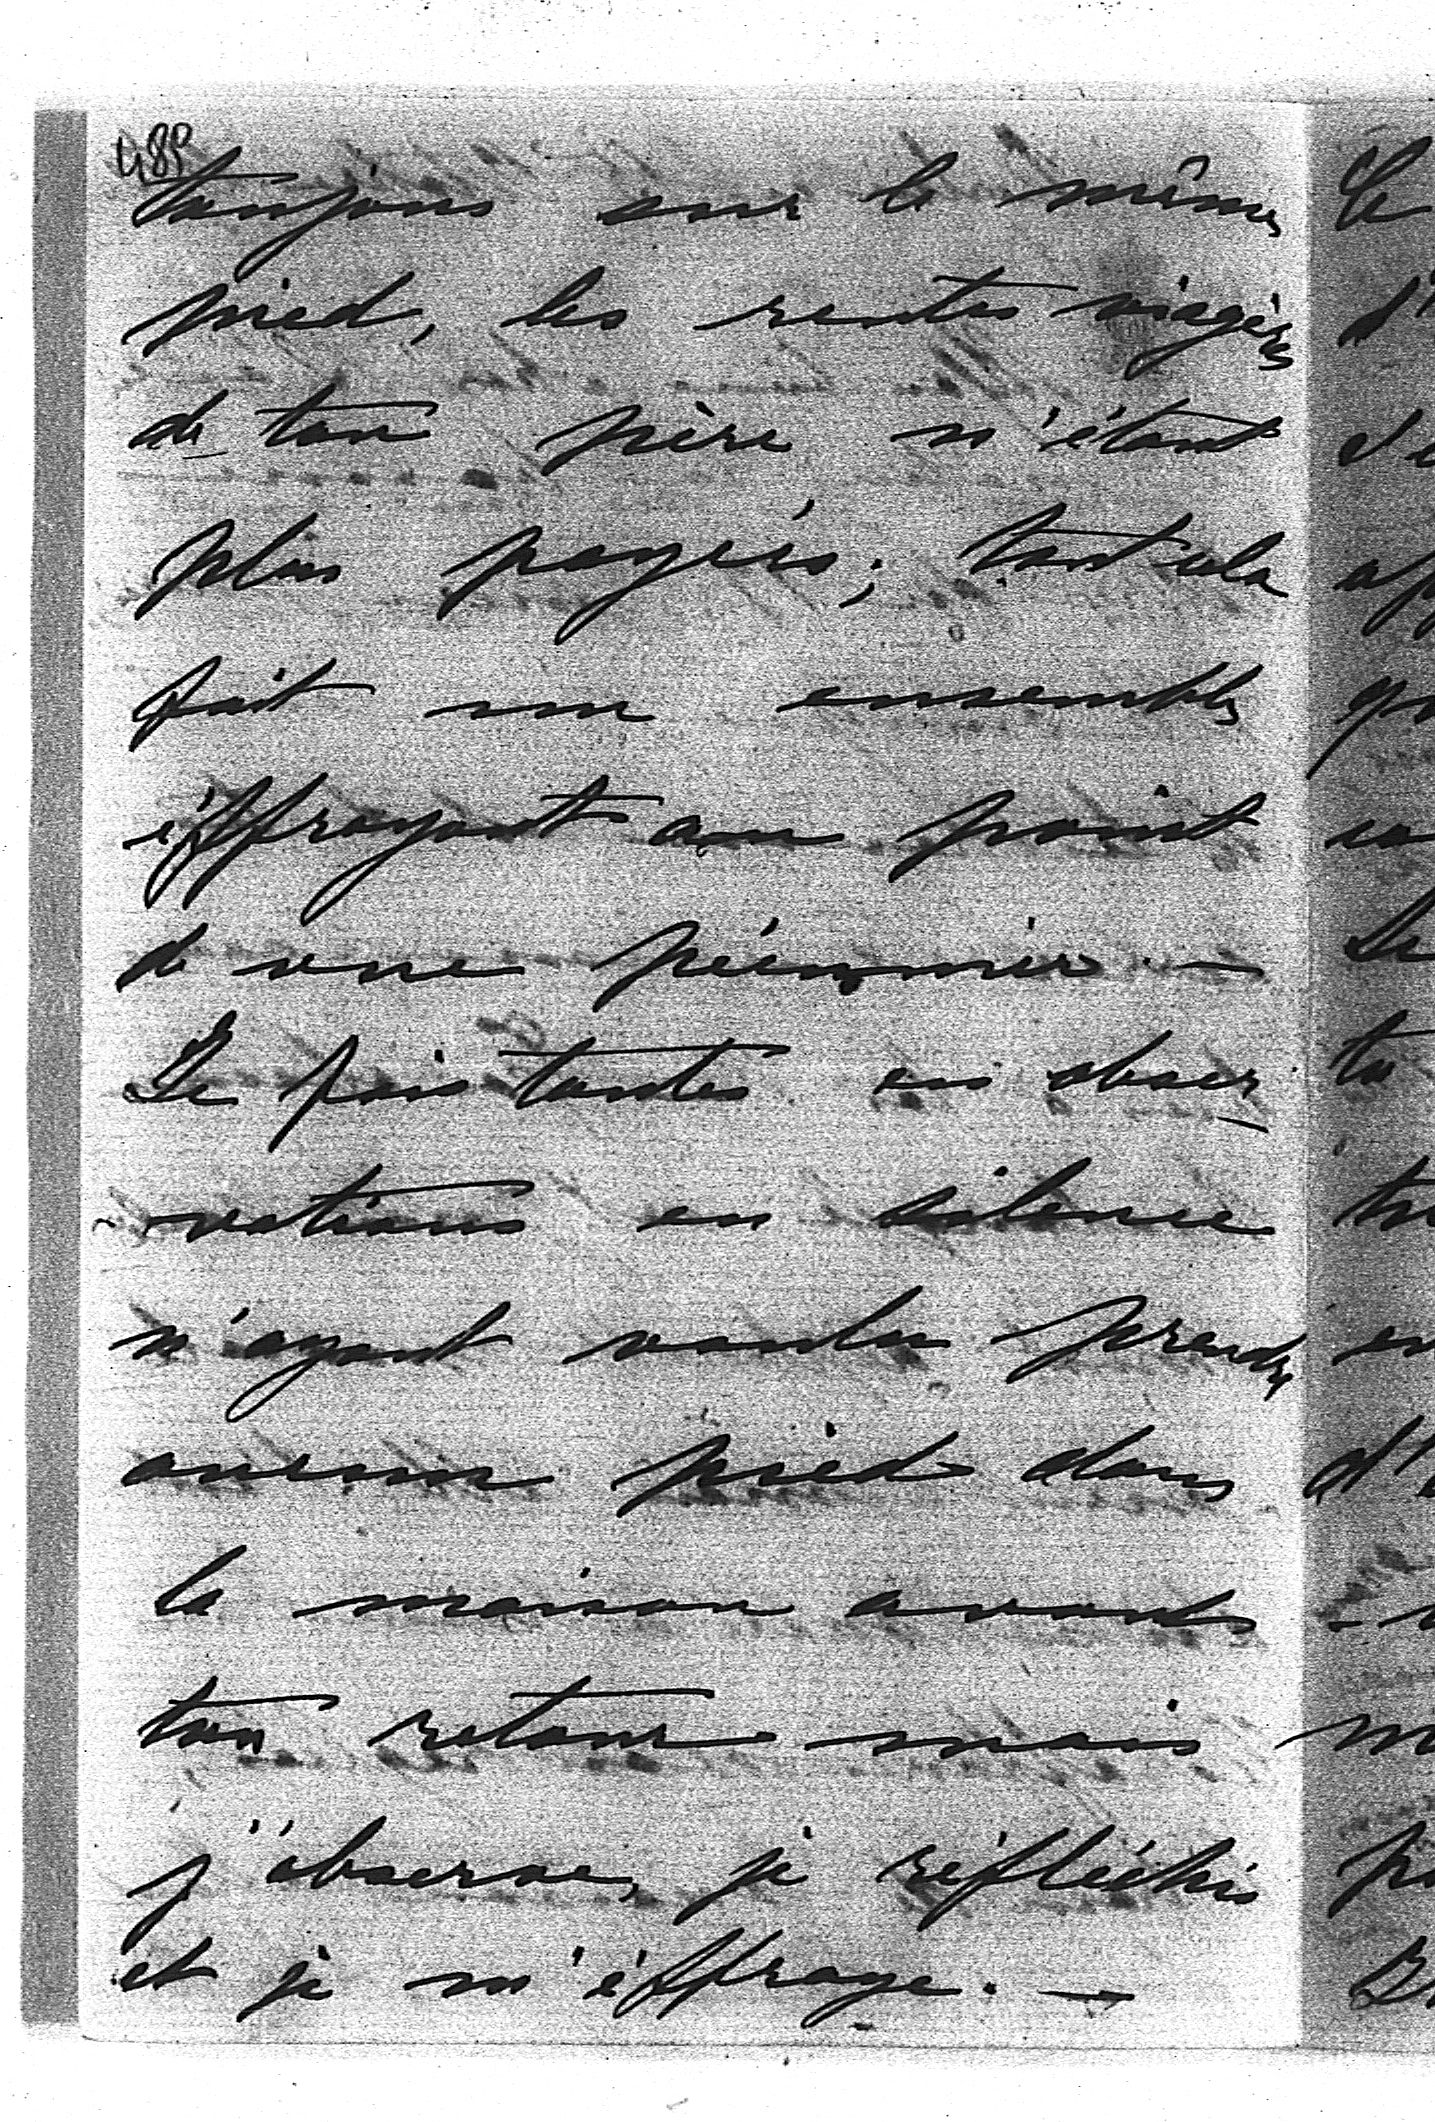 485
toujours sur le même
pied, les rentes viagères
de ton père n'étant
plus payées; tout cela
fait un ensemble
éffrayant au point
de vue pécunier. —
Je fais toutes ces obser
-vations en silence
n'ayant voulu prendre
aucun pied dans
la maison avant
ton retour mais
j'observe, je réfléchis
et je m'éffraye. —